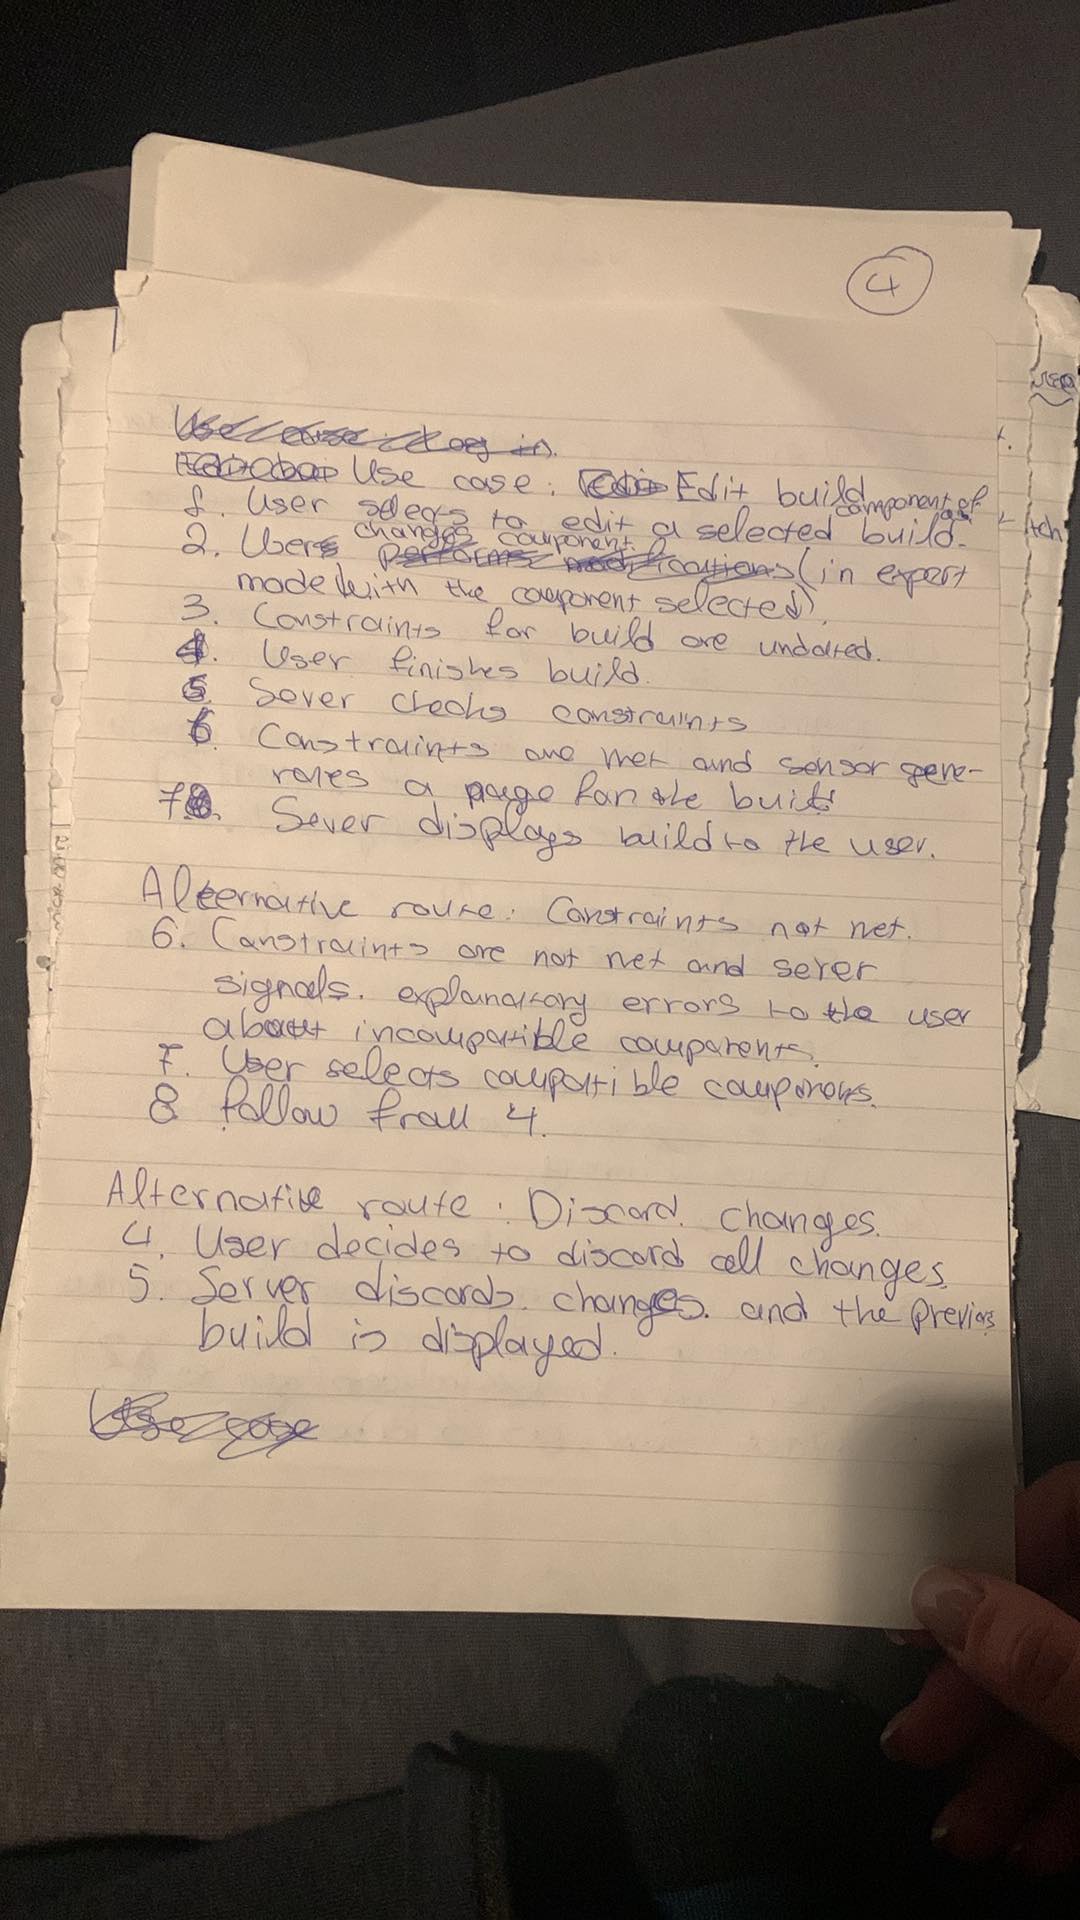 4
Use case: Log in
Use case: Edit build
component of
1. User selects to edit a selected build.
changes component
2. Users performs modifications (in expert
mode with the component selected).
3. Constraints for build are undated.
4. User finishes build.
5. Sever checks constraints
6. Constraints are met and sensor gene-
rates a page for the build
7. Sever displays build to the user.
Alternative route: Constraints not net.
6. Constraints are not net and server
signals. explanatory errors to the user
about incompatible components.
7. User selects compatible components.
8 follow from 4.
Alternative route: Discard. changes.
4. User decides to discard all changes.
5. Server discards. changes. and the previos
build is displayed.
Use case